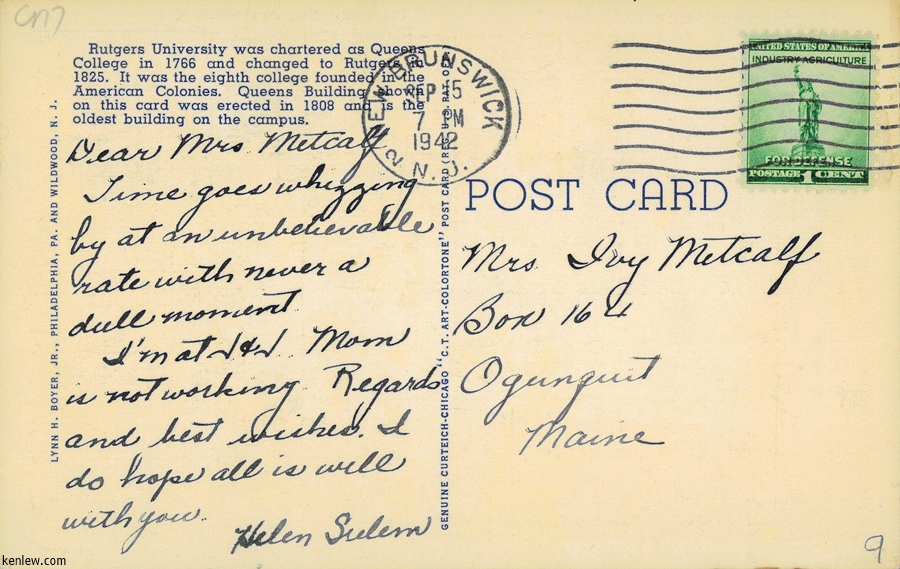 CN7
Rutgers University was chartered as Queens
College in 1766 and changed to Rutgers in
1825. It was the eighth college founded in the
American Colonies. Queens Building shown
on this card was erected in 1808 and is the
oldest building on the campus.
Dear Mrs. Metcalf
Time goes whizzing
by at an unbelievable
rate with never a
dull moment.
I'm at J&J. Mom
is not working Regards
and best wishes. I
do hope all is well
with you.
Helen
LYNN H. BOYER, JR., PHILADELPHIA, PA. AND WILDWOOD, N. J.
GENUINE CURTEICH-CHICAGO "C.T. ART-COLORTONE" POST CARD (REG. U.S. PAT. OFF.)
NEW BRUNSWICK
SEP 15
7 PM
1942
2 N. J.
UNITED STATES OF AMERICA
INDUSTRY AGRICULTURE
FOR DEFENSE
POSTAGE 1 CENT
POST CARD
Mrs. Ivy Metcalf
Box 164
Ogunquit
Maine
9
kenlew.com